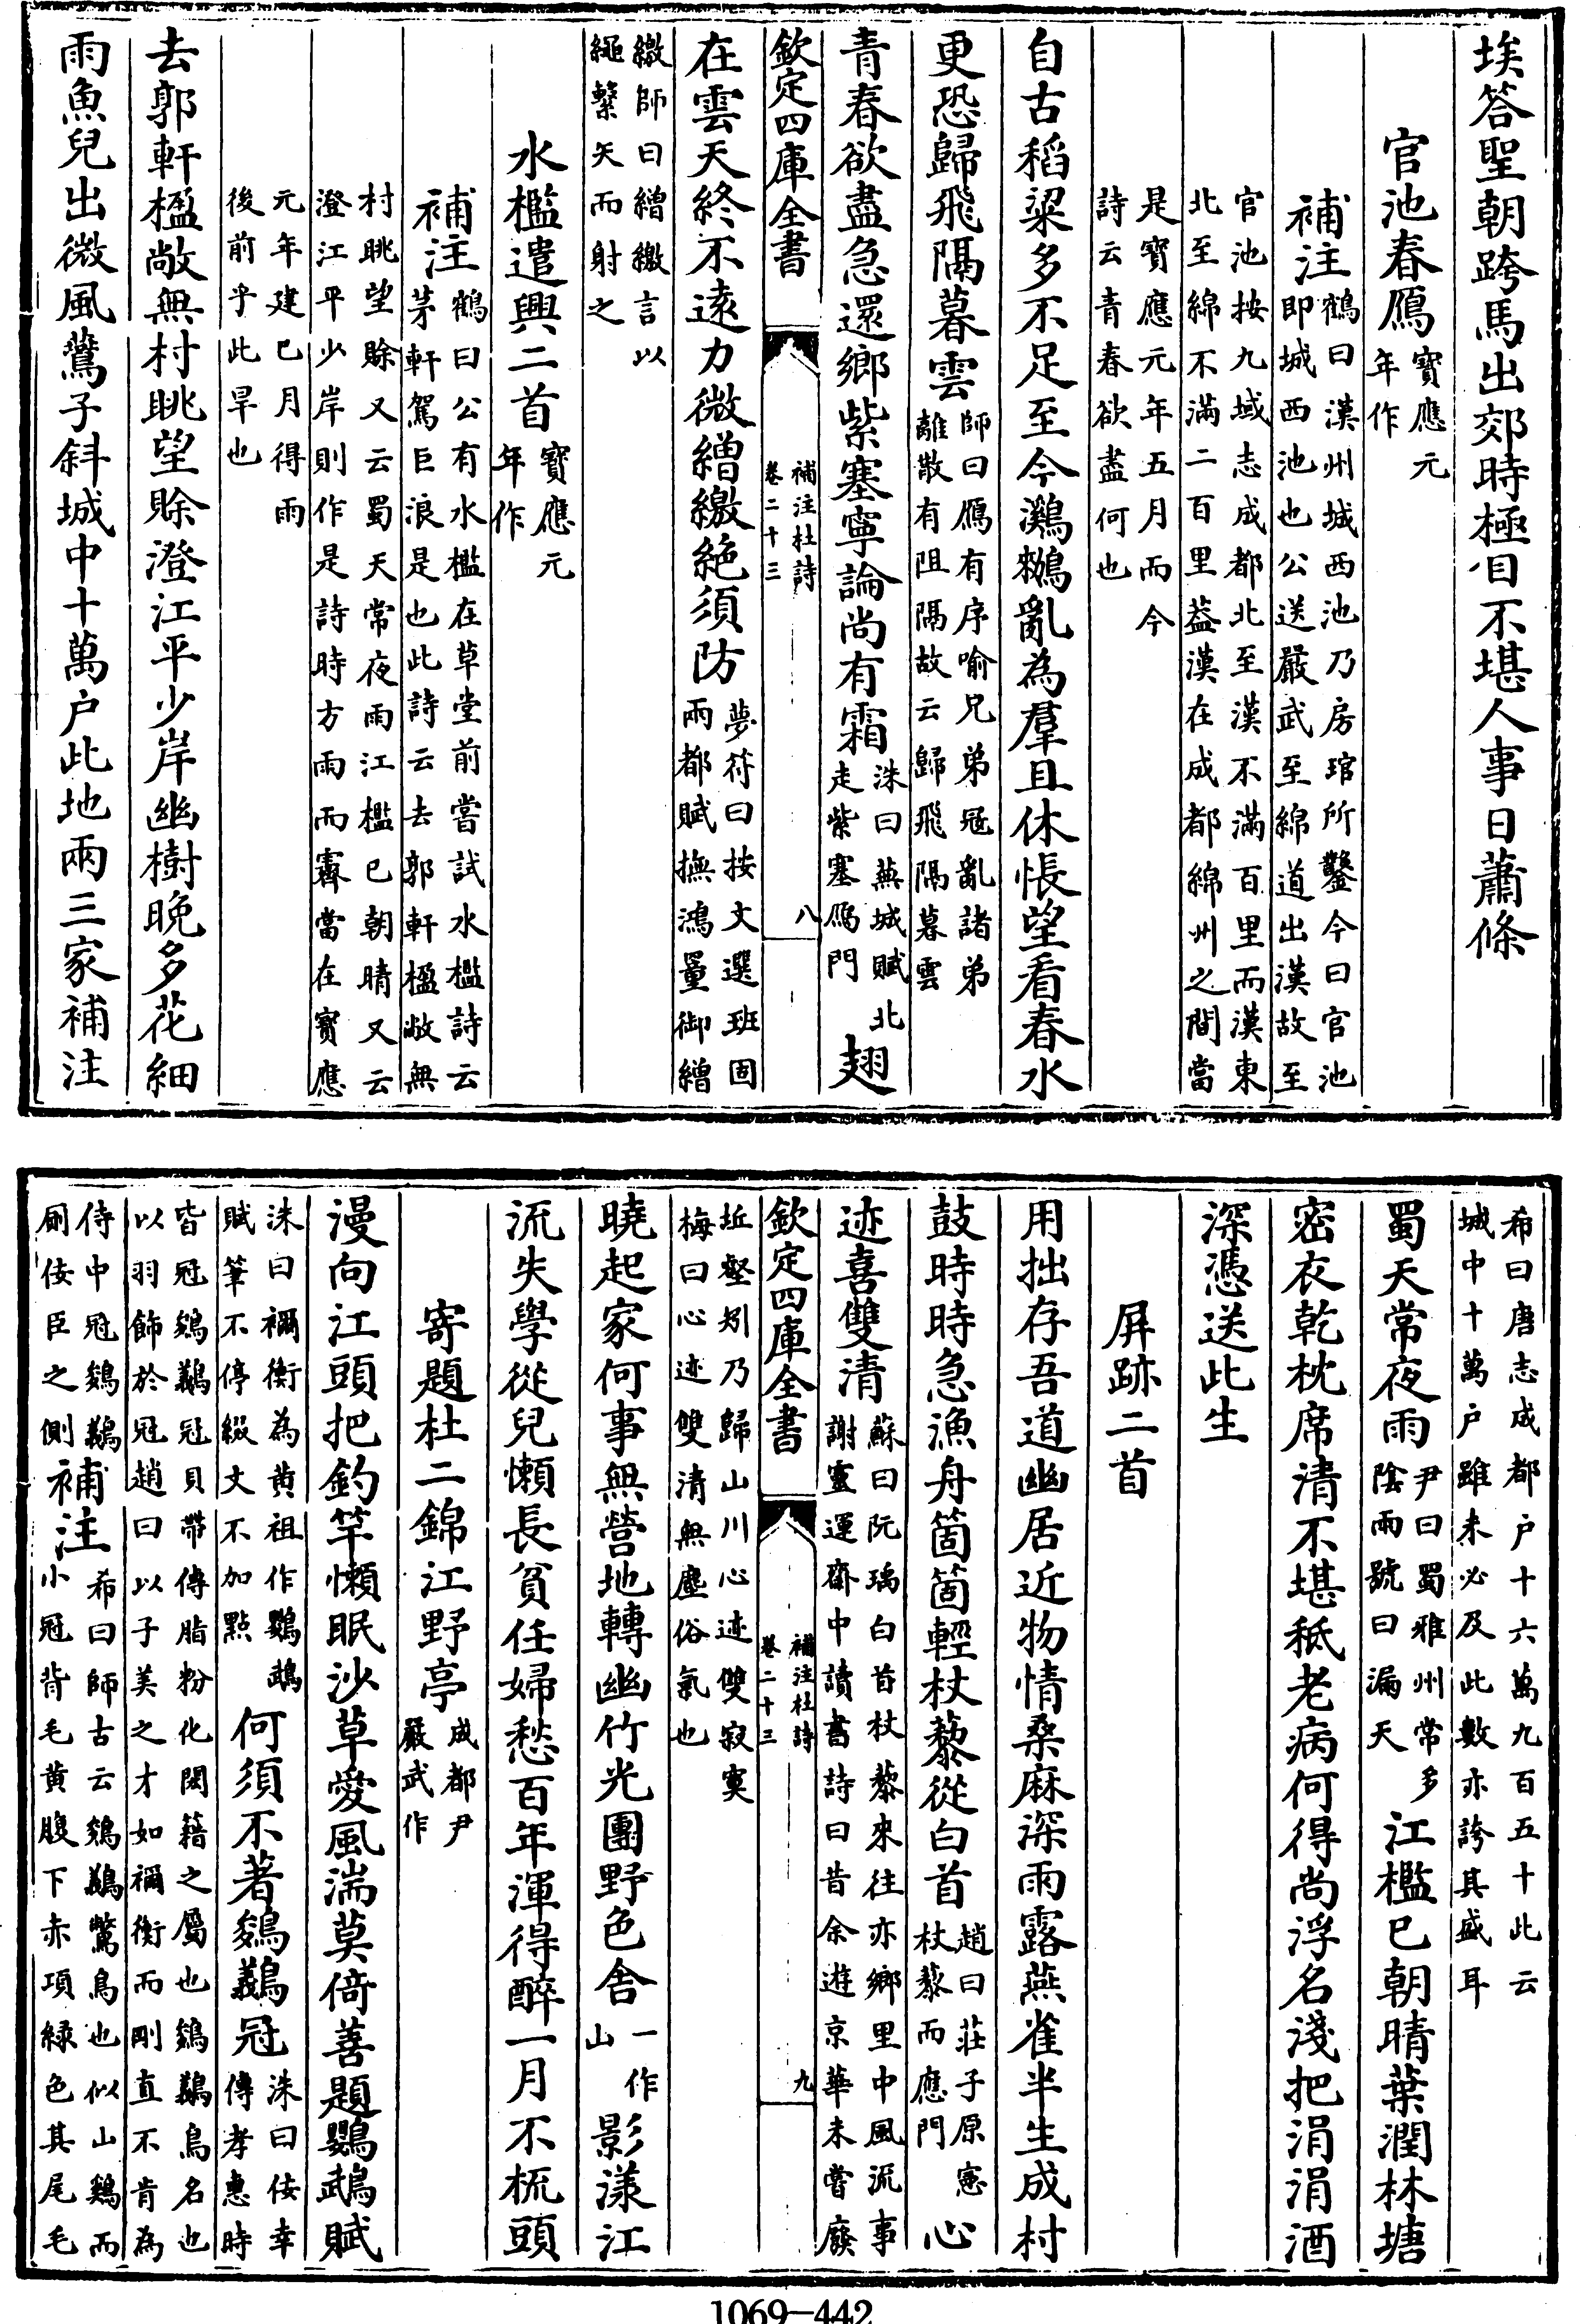 埃答聖朝跨馬出郊時極目不堪人事日蕭條
官池春鴈寶應元年作
補注鶴曰漢州城西池乃房琯所鑿今曰官池即城西池也公送嚴武至綿道出漢故至
官池按九域志成都北至漢不滿百里而漢東北至綿不滿二百里葢漢在成都綿州之間當
是寶應元年五月而今詩云青春欲盡何也
自古稻粱多不足至今鸂鶒亂為羣且休悵望看春水
更恐歸飛隔暮雲師曰鴈有序喻兄弟冦亂諸弟離散有阻隔故云歸飛隔暮雲
青春欲盡急還鄉紫塞寧論尚有霜洙曰蕪城賦北走紫塞鴈門翅
欽定四庫全書
補注杜詩
卷二十三
八
在雲天終不遠力微繒繳絶須防夢符曰按文選班固兩都賦撫鴻罿御繒
繳師曰繒繳言以繩繫矢而射之
水檻遣興二首寶應元年作
補注鶴曰公有水檻在草堂前嘗試水檻詩云茅軒駕巨浪是也此詩云去郭軒楹敞無
村眺望賖又云蜀天常夜雨江檻已朝晴又云澄江平少岸則作是詩時方雨而霽當在寶應
元年建巳月得雨後前乎此旱也
去郭軒楹敞無村眺望賖澄江平少岸幽樹晚多花細
雨魚兒出微風鷰子斜城中十萬户此地兩三家補注
希曰唐志成都户十六萬九百五十此云城中十萬户雖未必及此數亦誇其盛耳
蜀天常夜雨尹曰蜀雅州常多陰雨號曰漏天江檻已朝晴葉潤林塘
密衣乾枕席清不堪秪老病何得尚浮名淺把涓涓酒
深憑送此生
屏跡二首
用拙存吾道幽居近物情桑麻深雨露燕雀半生成村
鼓時時急漁舟箇箇輕杖藜從白首趙曰莊子原憲杖藜而應門心
迹喜雙清蘇曰阮瑀白首杖藜來往亦鄉里中風流事謝靈運齋中讀書詩曰昔余遊京華未嘗廢
欽定四庫全書
補注杜詩
卷二十三
九
坵壑矧乃歸山川心迹雙寂寞梅曰心迹雙清無塵俗氣也
曉起家何事無營地轉幽竹光團野色舍一作山影漾江
流失學從兒懶長貧任婦愁百年渾得醉一月不梳頭
寄題杜二錦江野亭成都尹嚴武作
漫向江頭把釣竿懶眠沙草愛風湍莫倚善題鸚鵡賦
洙曰禰衡為黄祖作鸚鵡賦筆不停綴文不加點何須不著鵕鸃冠洙曰佞幸傳孝惠時
皆冠鵕鸃冠貝帶傅脂粉化閎籍之屬也鵕鸃鳥名也以羽飾於冠趙曰以子美之才如禰衡而剛直不肯為
侍中冠鵕鸃厠佞臣之側補注希曰師古云鵕鸃鷩鳥也似山鷄而小冠背毛黄腹下赤項緑色其尾毛
1069—442